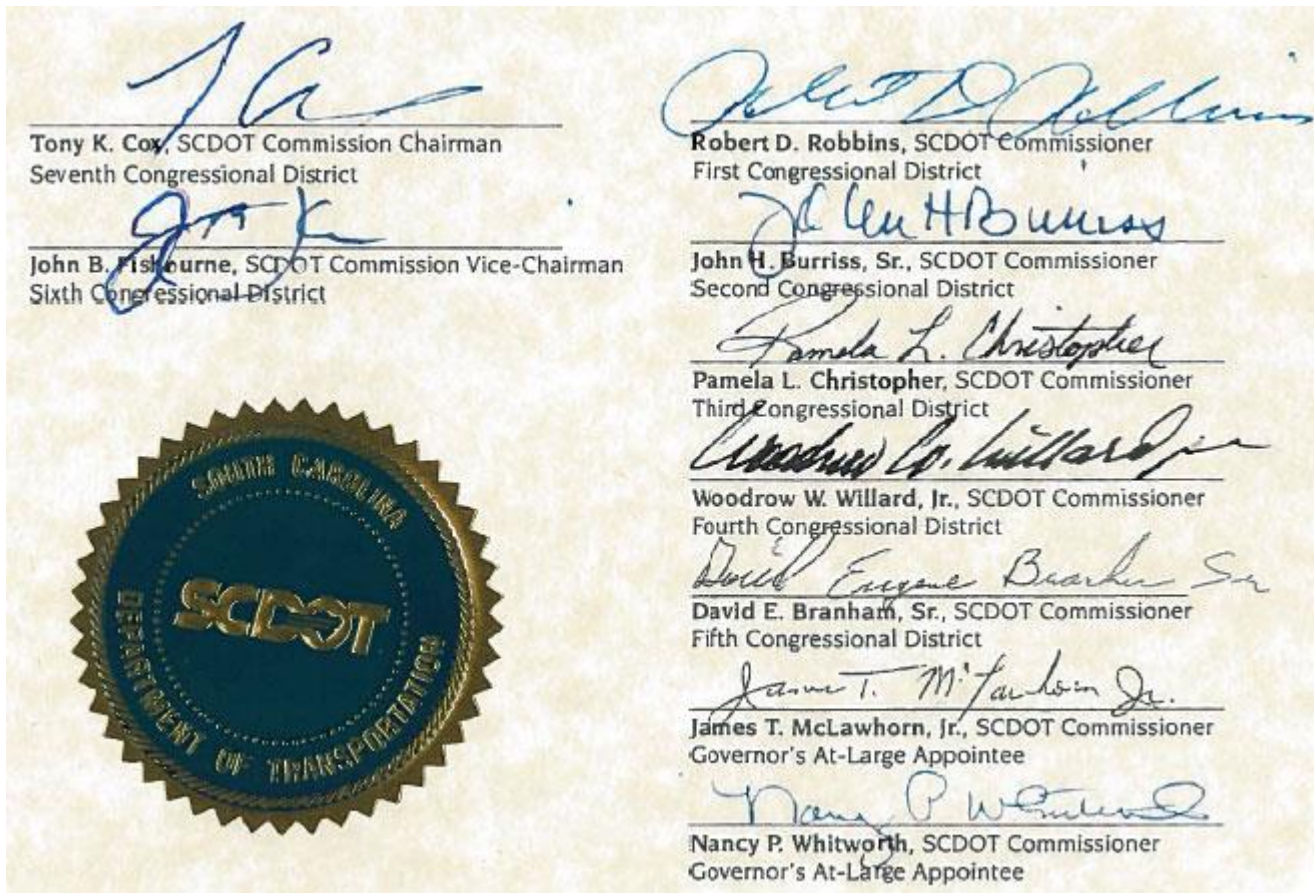 Tony K. Cox, SCDOT Commission Chairman
Seventh Congressional District
John B. Fishburne, SCDOT Commission Vice-Chairman
Sixth Congressional District
SOUTH CAROLINA
SCDOT
DEPARTMENT OF TRANSPORTATION
Robert D. Robbins
Robert D. Robbins, SCDOT Commissioner
First Congressional District
John H Burriss
John H. Burriss, Sr., SCDOT Commissioner
Second Congressional District
Pamela L. Christopher
Pamela L. Christopher, SCDOT Commissioner
Third Congressional District
Woodrow W. Willard Jr
Woodrow W. Willard, Jr., SCDOT Commissioner
Fourth Congressional District
David Eugene Branham Sr
David E. Branham, Sr., SCDOT Commissioner
Fifth Congressional District
James T. McLawhorn Jr.
James T. McLawhorn, Jr., SCDOT Commissioner
Governor's At-Large Appointee
Nancy P Whitworth
Nancy P. Whitworth, SCDOT Commissioner
Governor's At-Large Appointee